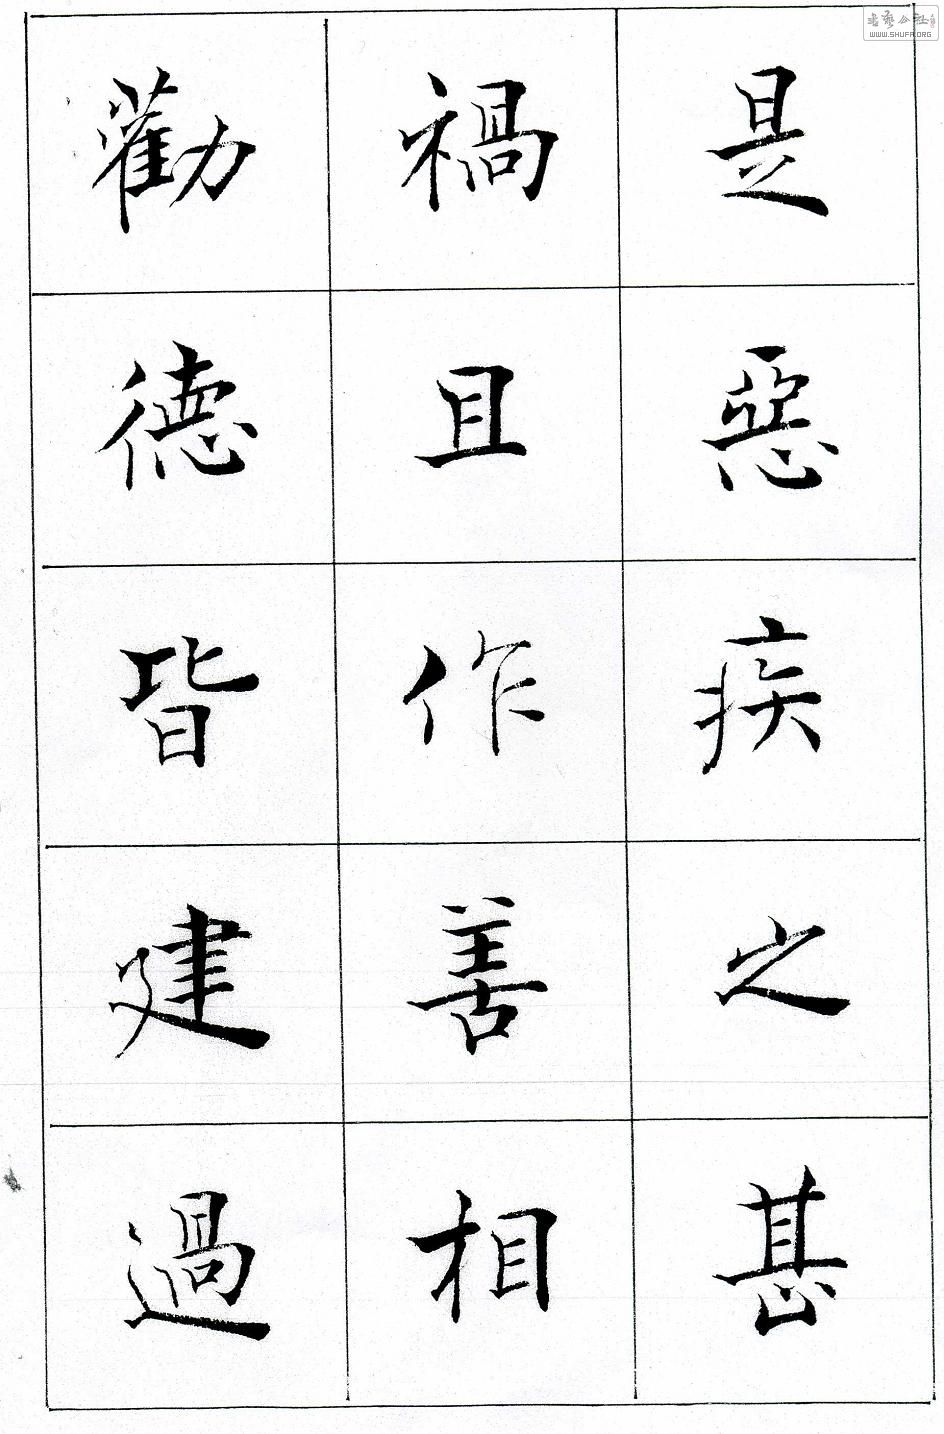 是惡疾之甚
禍且作善相
勸德皆建過
WWW.SHUFA.ORG